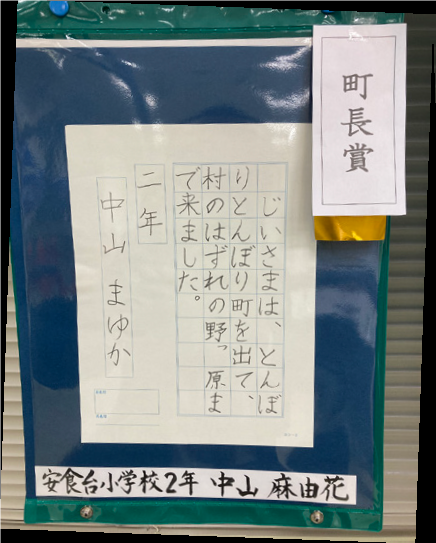 町長賞
じいさまは、とんぼ
りとんぼり町を出て、
村のはずれの野っ原ま
で来ました。
二年
中山まゆか
安食台小学校2年 中山 麻由花